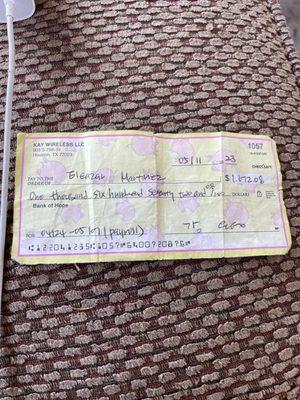 KAY WIRELESS LLC
Houston, TX 77023
1057
05/11 23
PAY TO THE ORDER OF Eleazar Martinez $1,672.08
One thousand six hundred seventy two and 08/100 DOLLARS
Bank of Hope
FOR 04/24 - 05/07 (payroll)